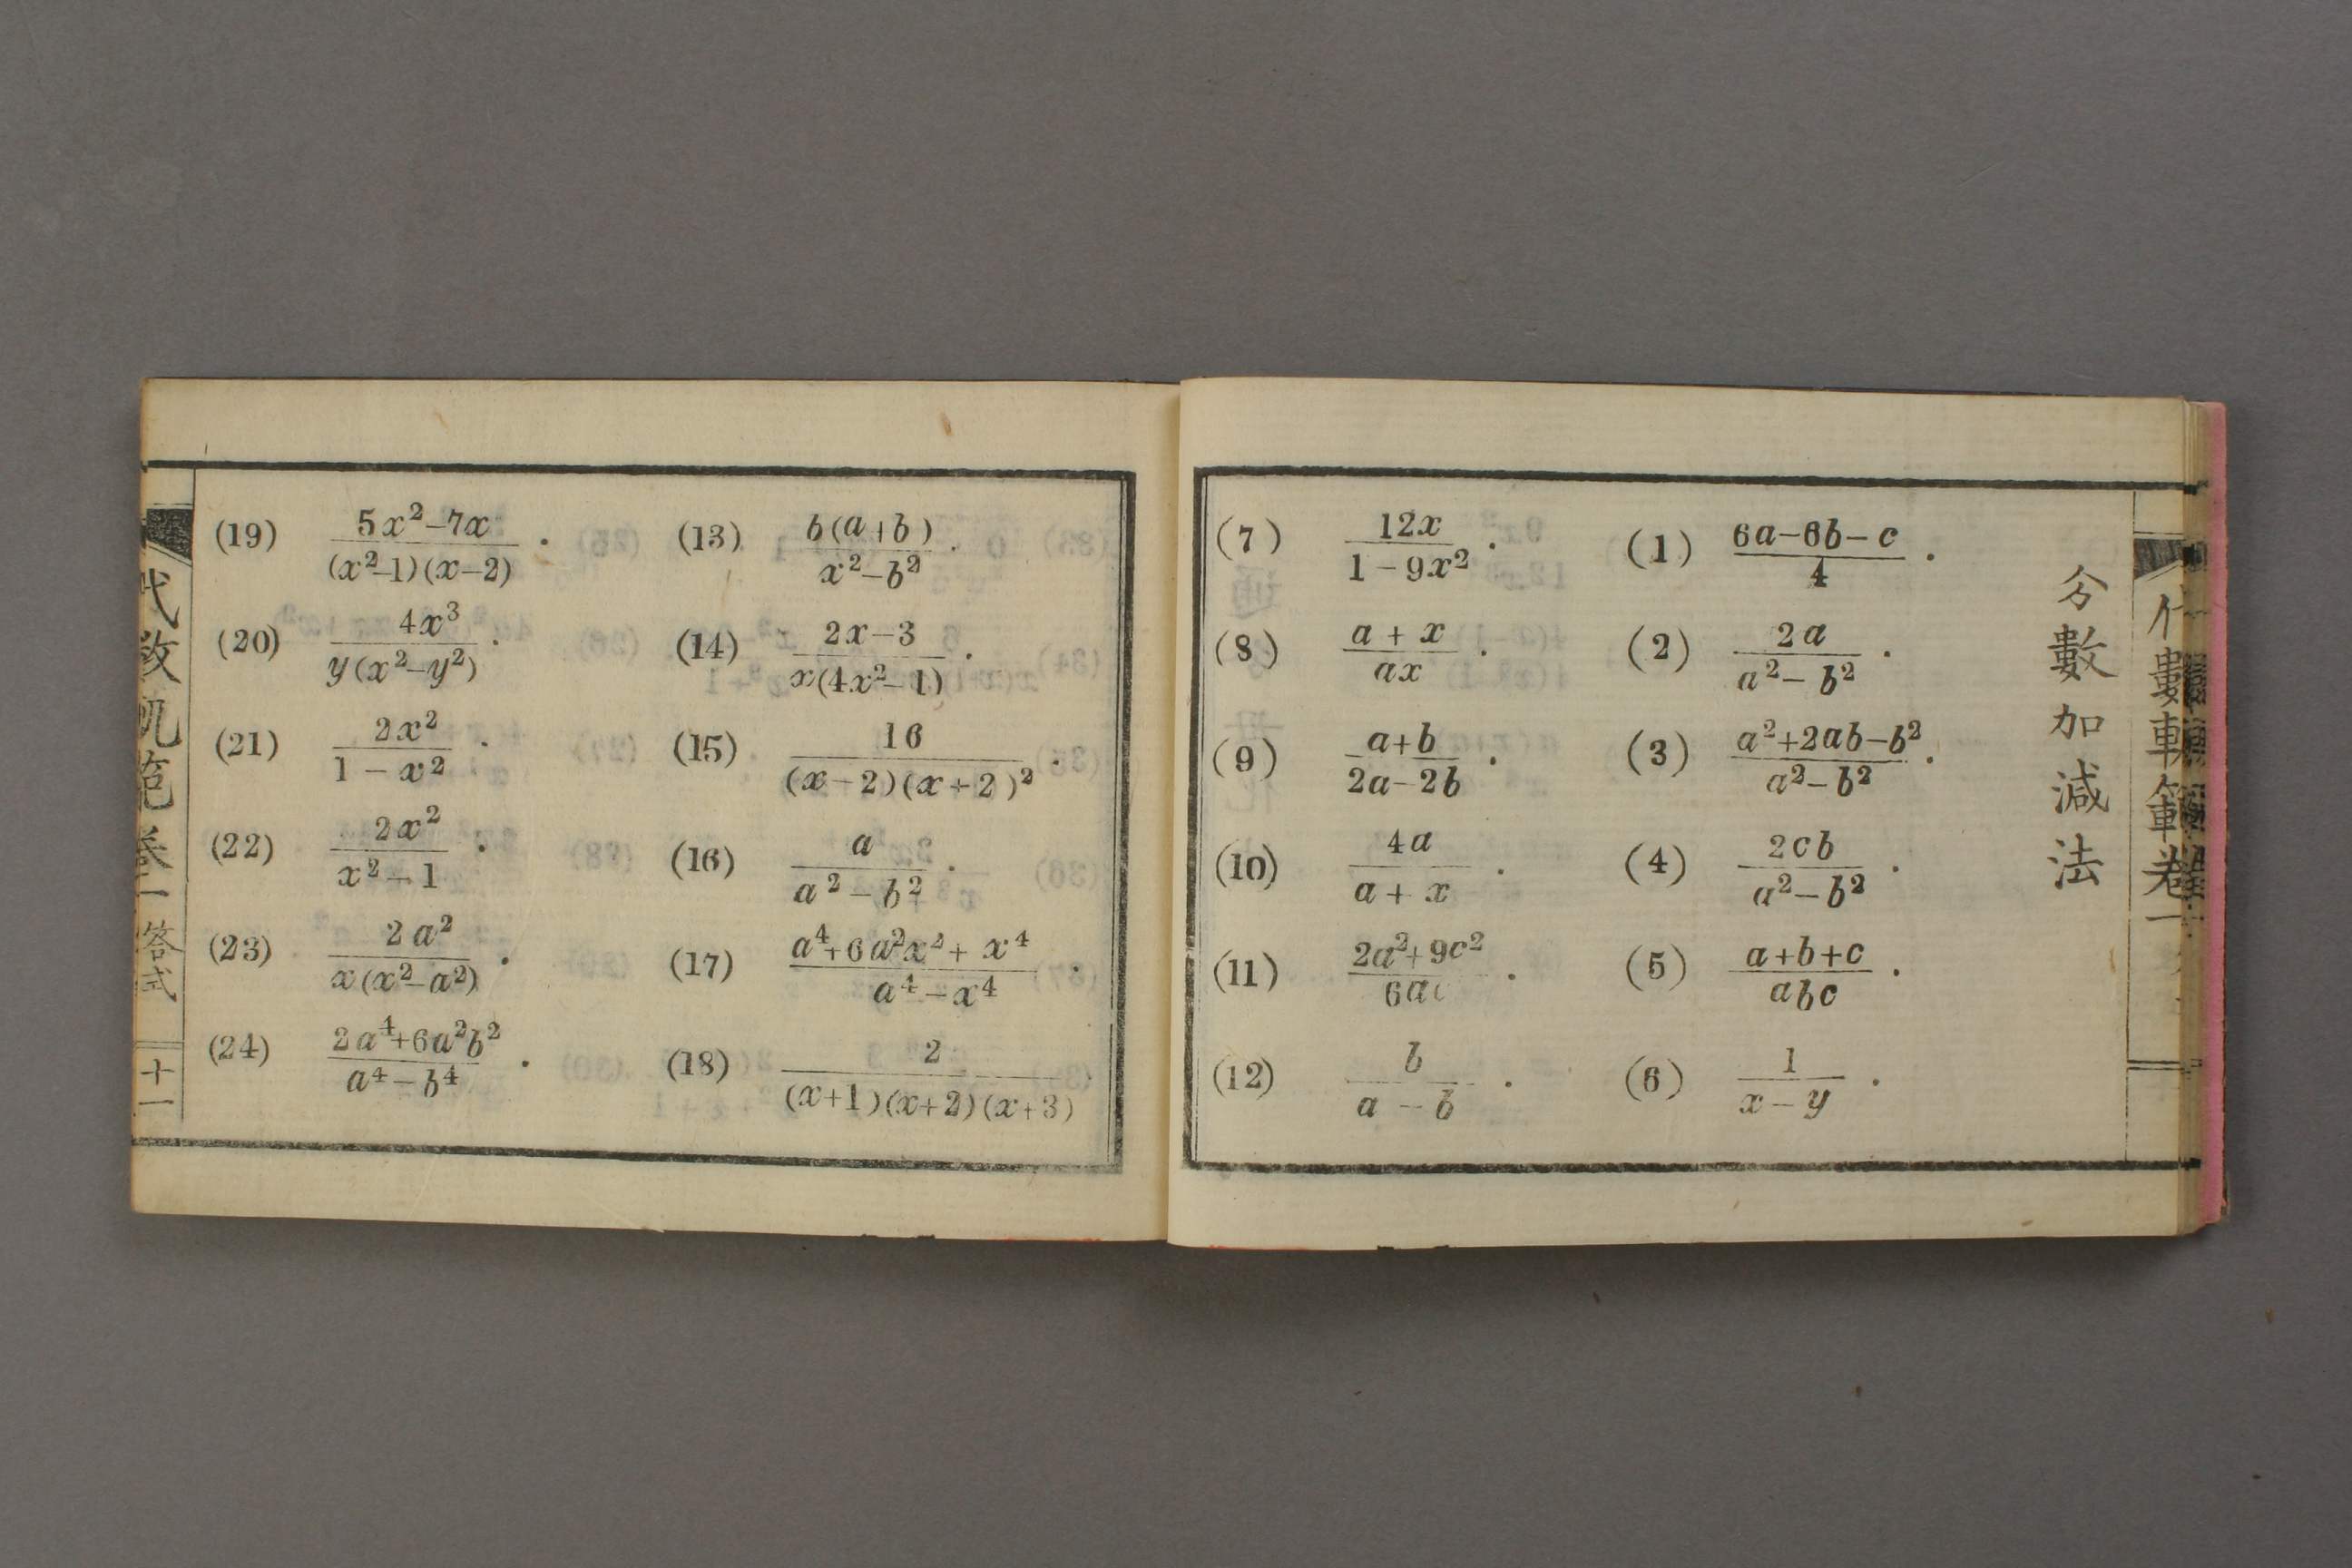 分數加減法
(1) (6a-6b-c)/4 .
(2) 2a/(a²-b²) .
(3) (a²+2ab-b²)/(a²-b²) .
(4) 2cb/(a²-b²) .
(5) (a+b+c)/abc .
(6) 1/(x-y) .
(7) 12x/(1-9x²) .
(8) (a+x)/ax .
(9) (a+b)/(2a-2b) .
(10) 4a/(a+x) .
(11) (2a²+9c²)/6ac .
(12) b/(a-b) .
(13) b(a+b)/(x²-b²) .
(14) (2x-3)/(x(4x²-1)) .
(15) 16/((x-2)(x+2)²) .
(16) a/(a²-b²) .
(17) (a⁴+6a²x²+x⁴)/(a⁴-x⁴) .
(18) 2/((x+1)(x+2)(x+3)) .
(19) (5x²-7x)/((x²-1)(x-2)) .
(20) 4x³/(y(x²-y²)) .
(21) 2x²/(1-x²) .
(22) 2x²/(x²-1) .
(23) 2a²/(x(x²-a²)) .
(24) (2a⁴+6a²b²)/(a⁴-b⁴) .
卷一 答式 十一